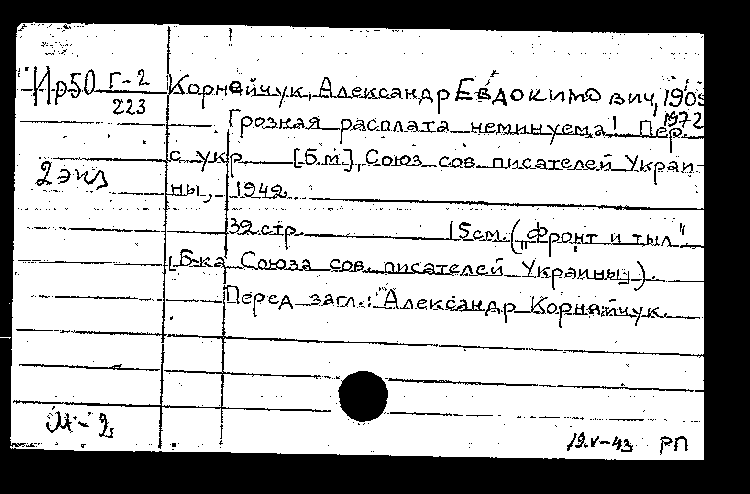 Ир50 Г-2 Корнейчук, Александр Евдокимович, 1905
223 1972
Грозная расплата неминуема! Пер.
с укр. [Б.м.], Союз сов. писателей Украи-
2 экз ны, 1942.
32 стр. 15 см. („Фронт и тыл"
[Б-ка Союза сов. писателей Украины]).
Перед загл.: Александр Корнейчук.
М-2
19.V-43 РП